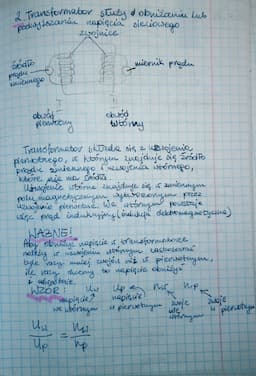 2. Transformator służy do obniżania lub
podwyższania napięcia sieciowego
zwojnice
źródło
prądu
zmiennego
miernik prądu
obwód
pierwotny
obwód
wtórny
Transformator składa się z uzwojenia
pierwotnego, w którym znajduje się źródło
prądu zmiennego i uzwojenia wtórnego,
które nie ma źródła.
Uzwojenie wtórne znajduje się w zmiennym
polu magnetycznym wytworzonym przez
uzwojenie pierwotne. We wtórnym powstaje
więc prąd indukcyjny (indukcja elektromagnetyczna)
WAŻNE!
Aby obniżyć napięcie w transformatorze
należy w uzwojeniu wtórnym zastosować
tyle razy mniej zwojów niż w pierwotnym,
ile razy chcemy to napięcie obniżyć
WZÓR: Uw Up nw np
napięcie
we wtórnym
napięcie
w pierwotnym
zwoje
we
wtórnym
zwoje
w pierwotnym
Uw/Up = nw/np